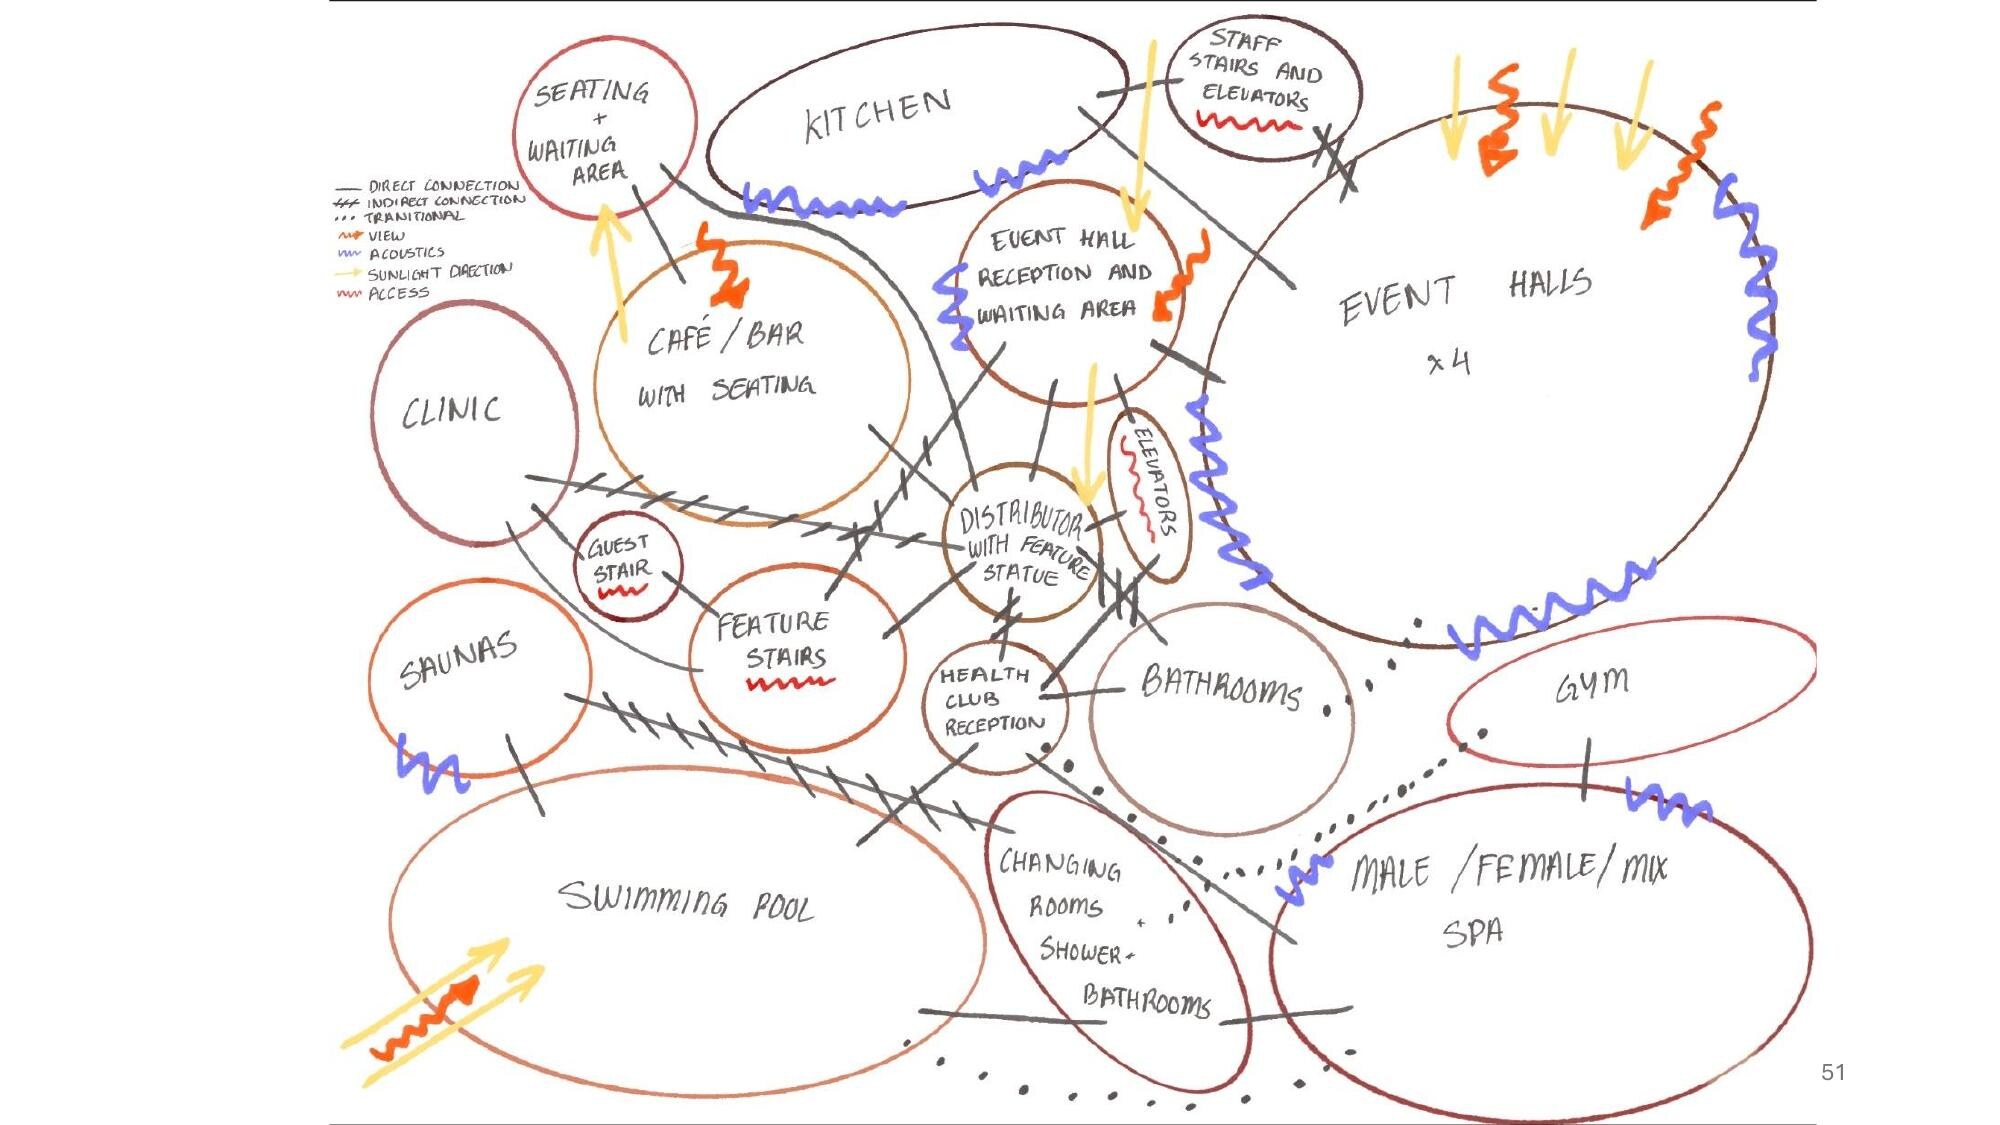 SEATING
+
WAITING
AREA
KITCHEN
STAFF
STAIRS AND
ELEVATORS
DIRECT CONNECTION
INDIRECT CONNECTION
TRANITIONAL
VIEW
ACOUSTICS
SUNLIGHT DIRECTION
ACCESS
EVENT HALL
RECEPTION AND
WAITING AREA
EVENT HALLS
x4
CAFÉ / BAR
WITH SEATING
CLINIC
ELEVATORS
DISTRIBUTOR
WITH FEATURE
STATUE
GUEST
STAIR
FEATURE
STAIRS
SAUNAS
HEALTH
CLUB
RECEPTION
BATHROOMS
GYM
SWIMMING POOL
CHANGING
ROOMS +
SHOWER+
BATHROOMS
MALE /FEMALE/ MIX
SPA
51